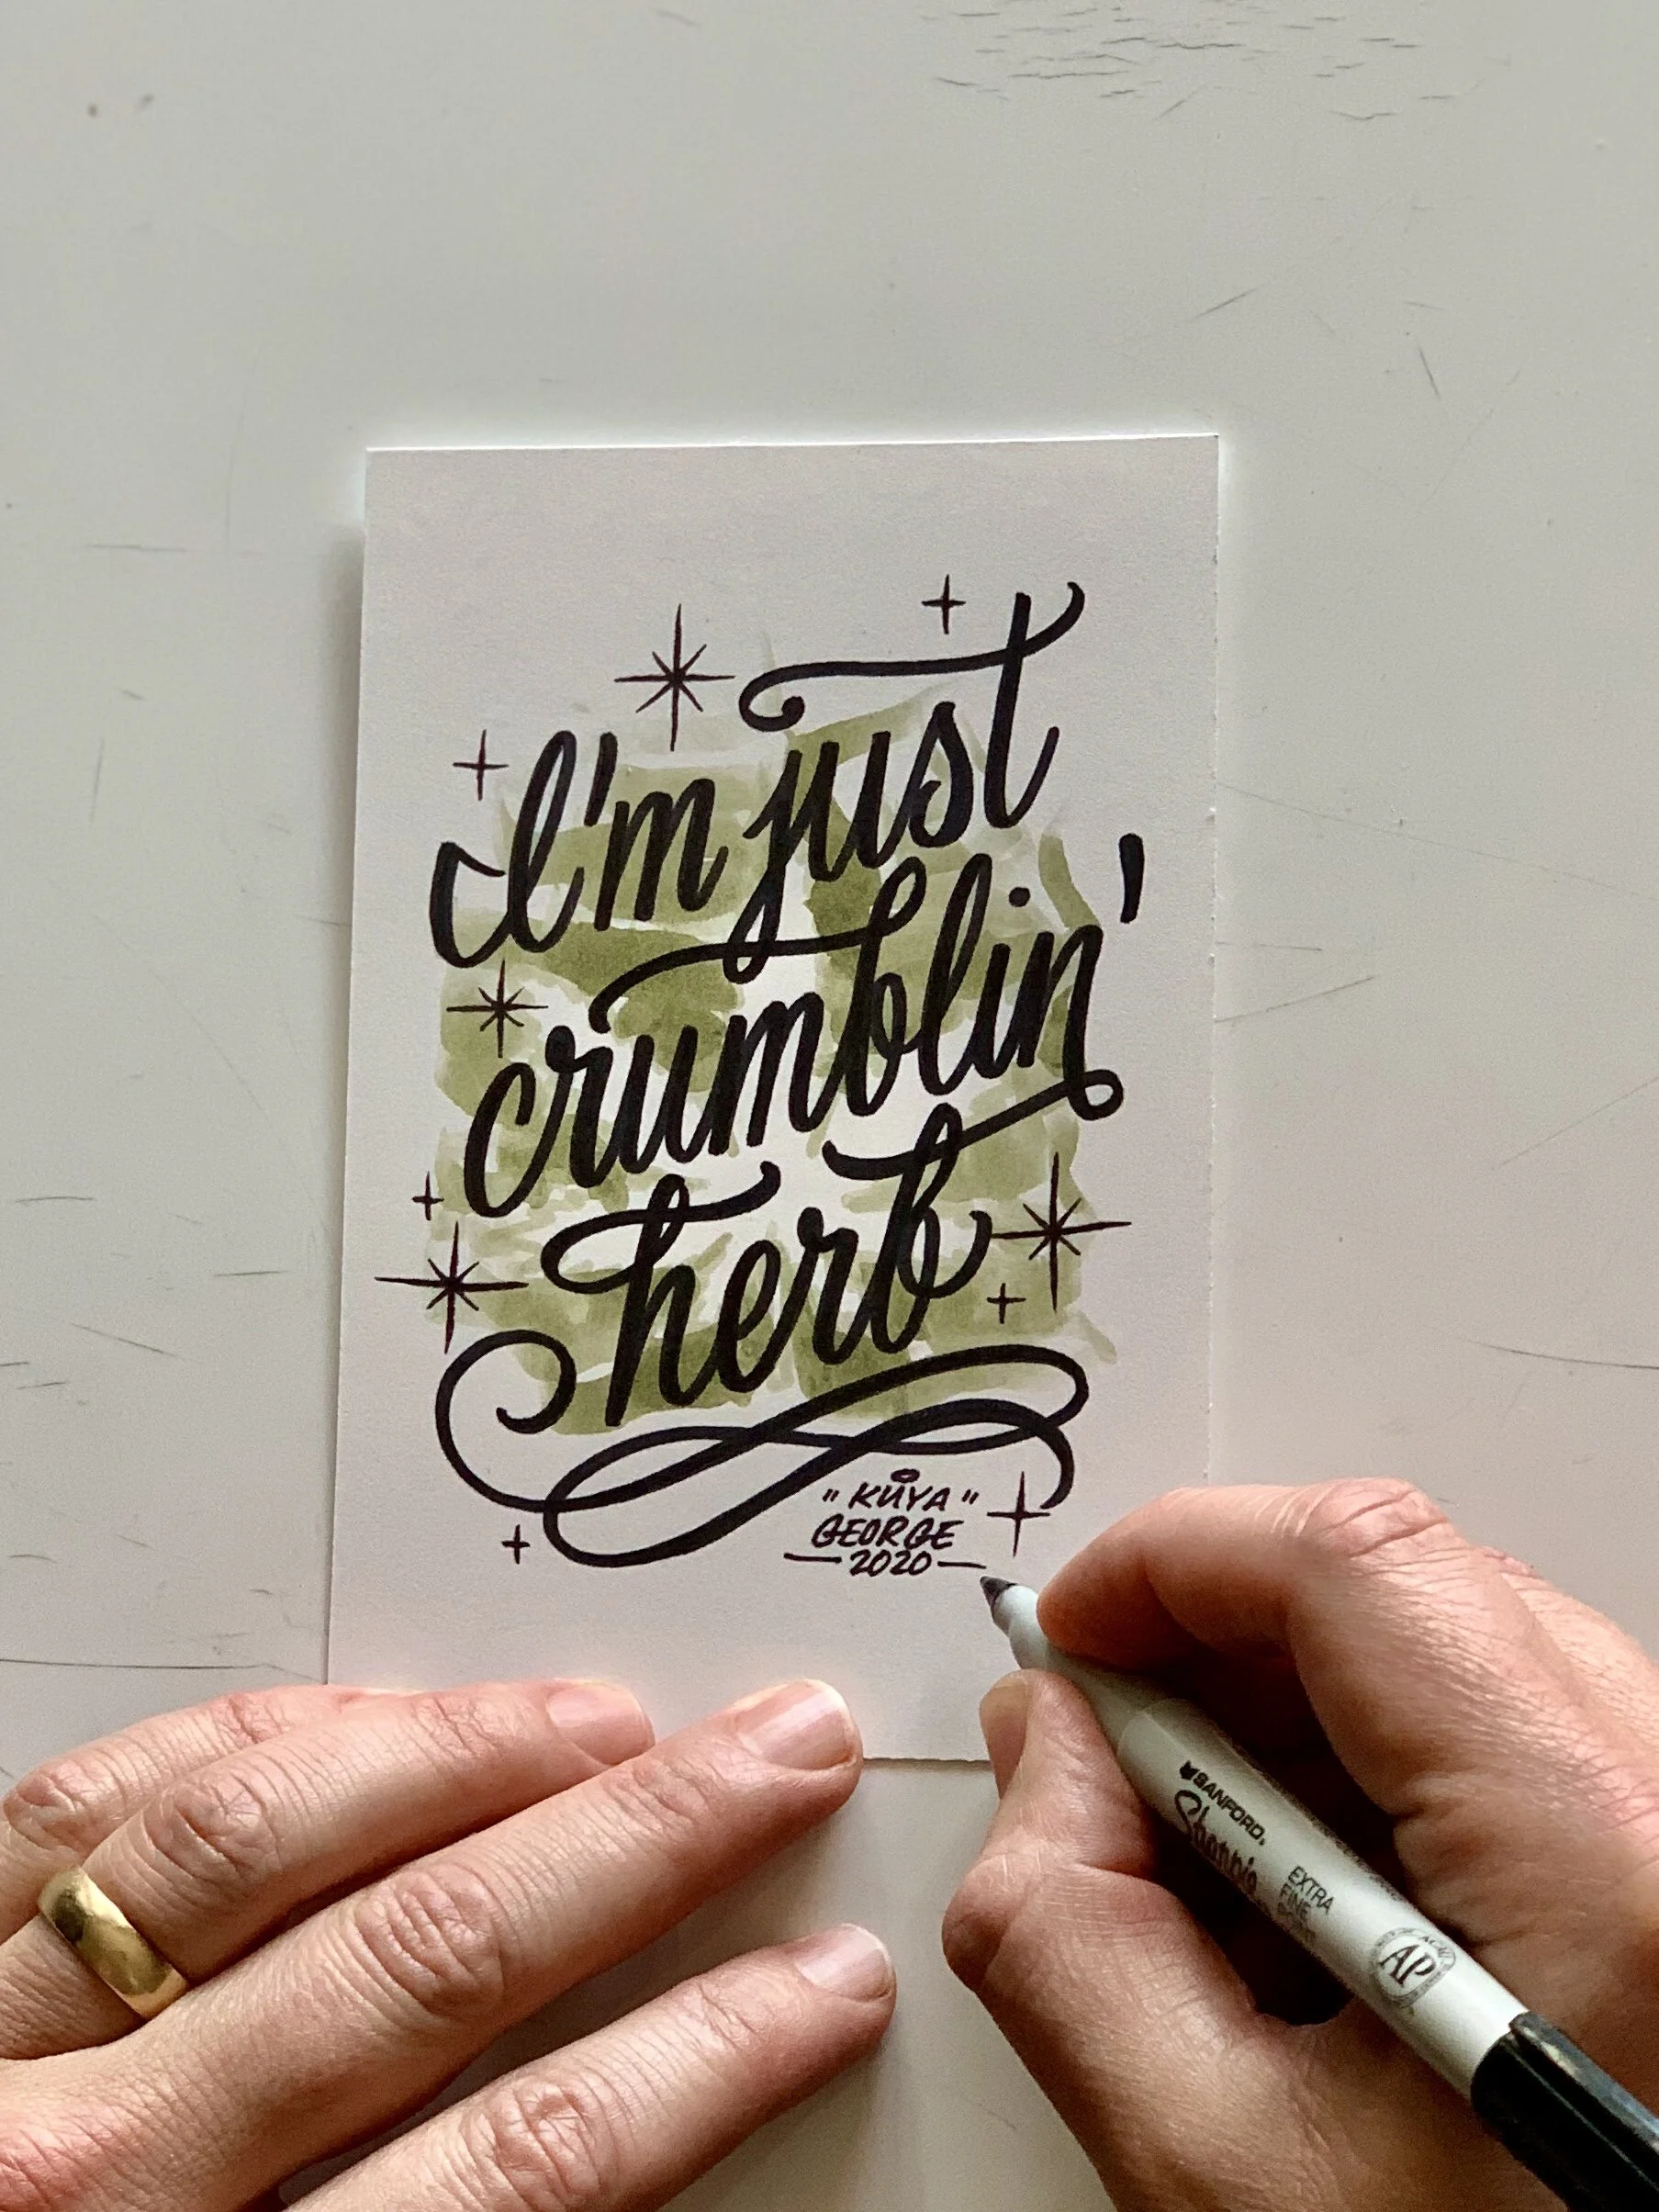 I'm just
crumblin'
herb
"KUYA"
GEORGE
—2020—
SANFORD.
Sharpie
EXTRA
FINE
AP